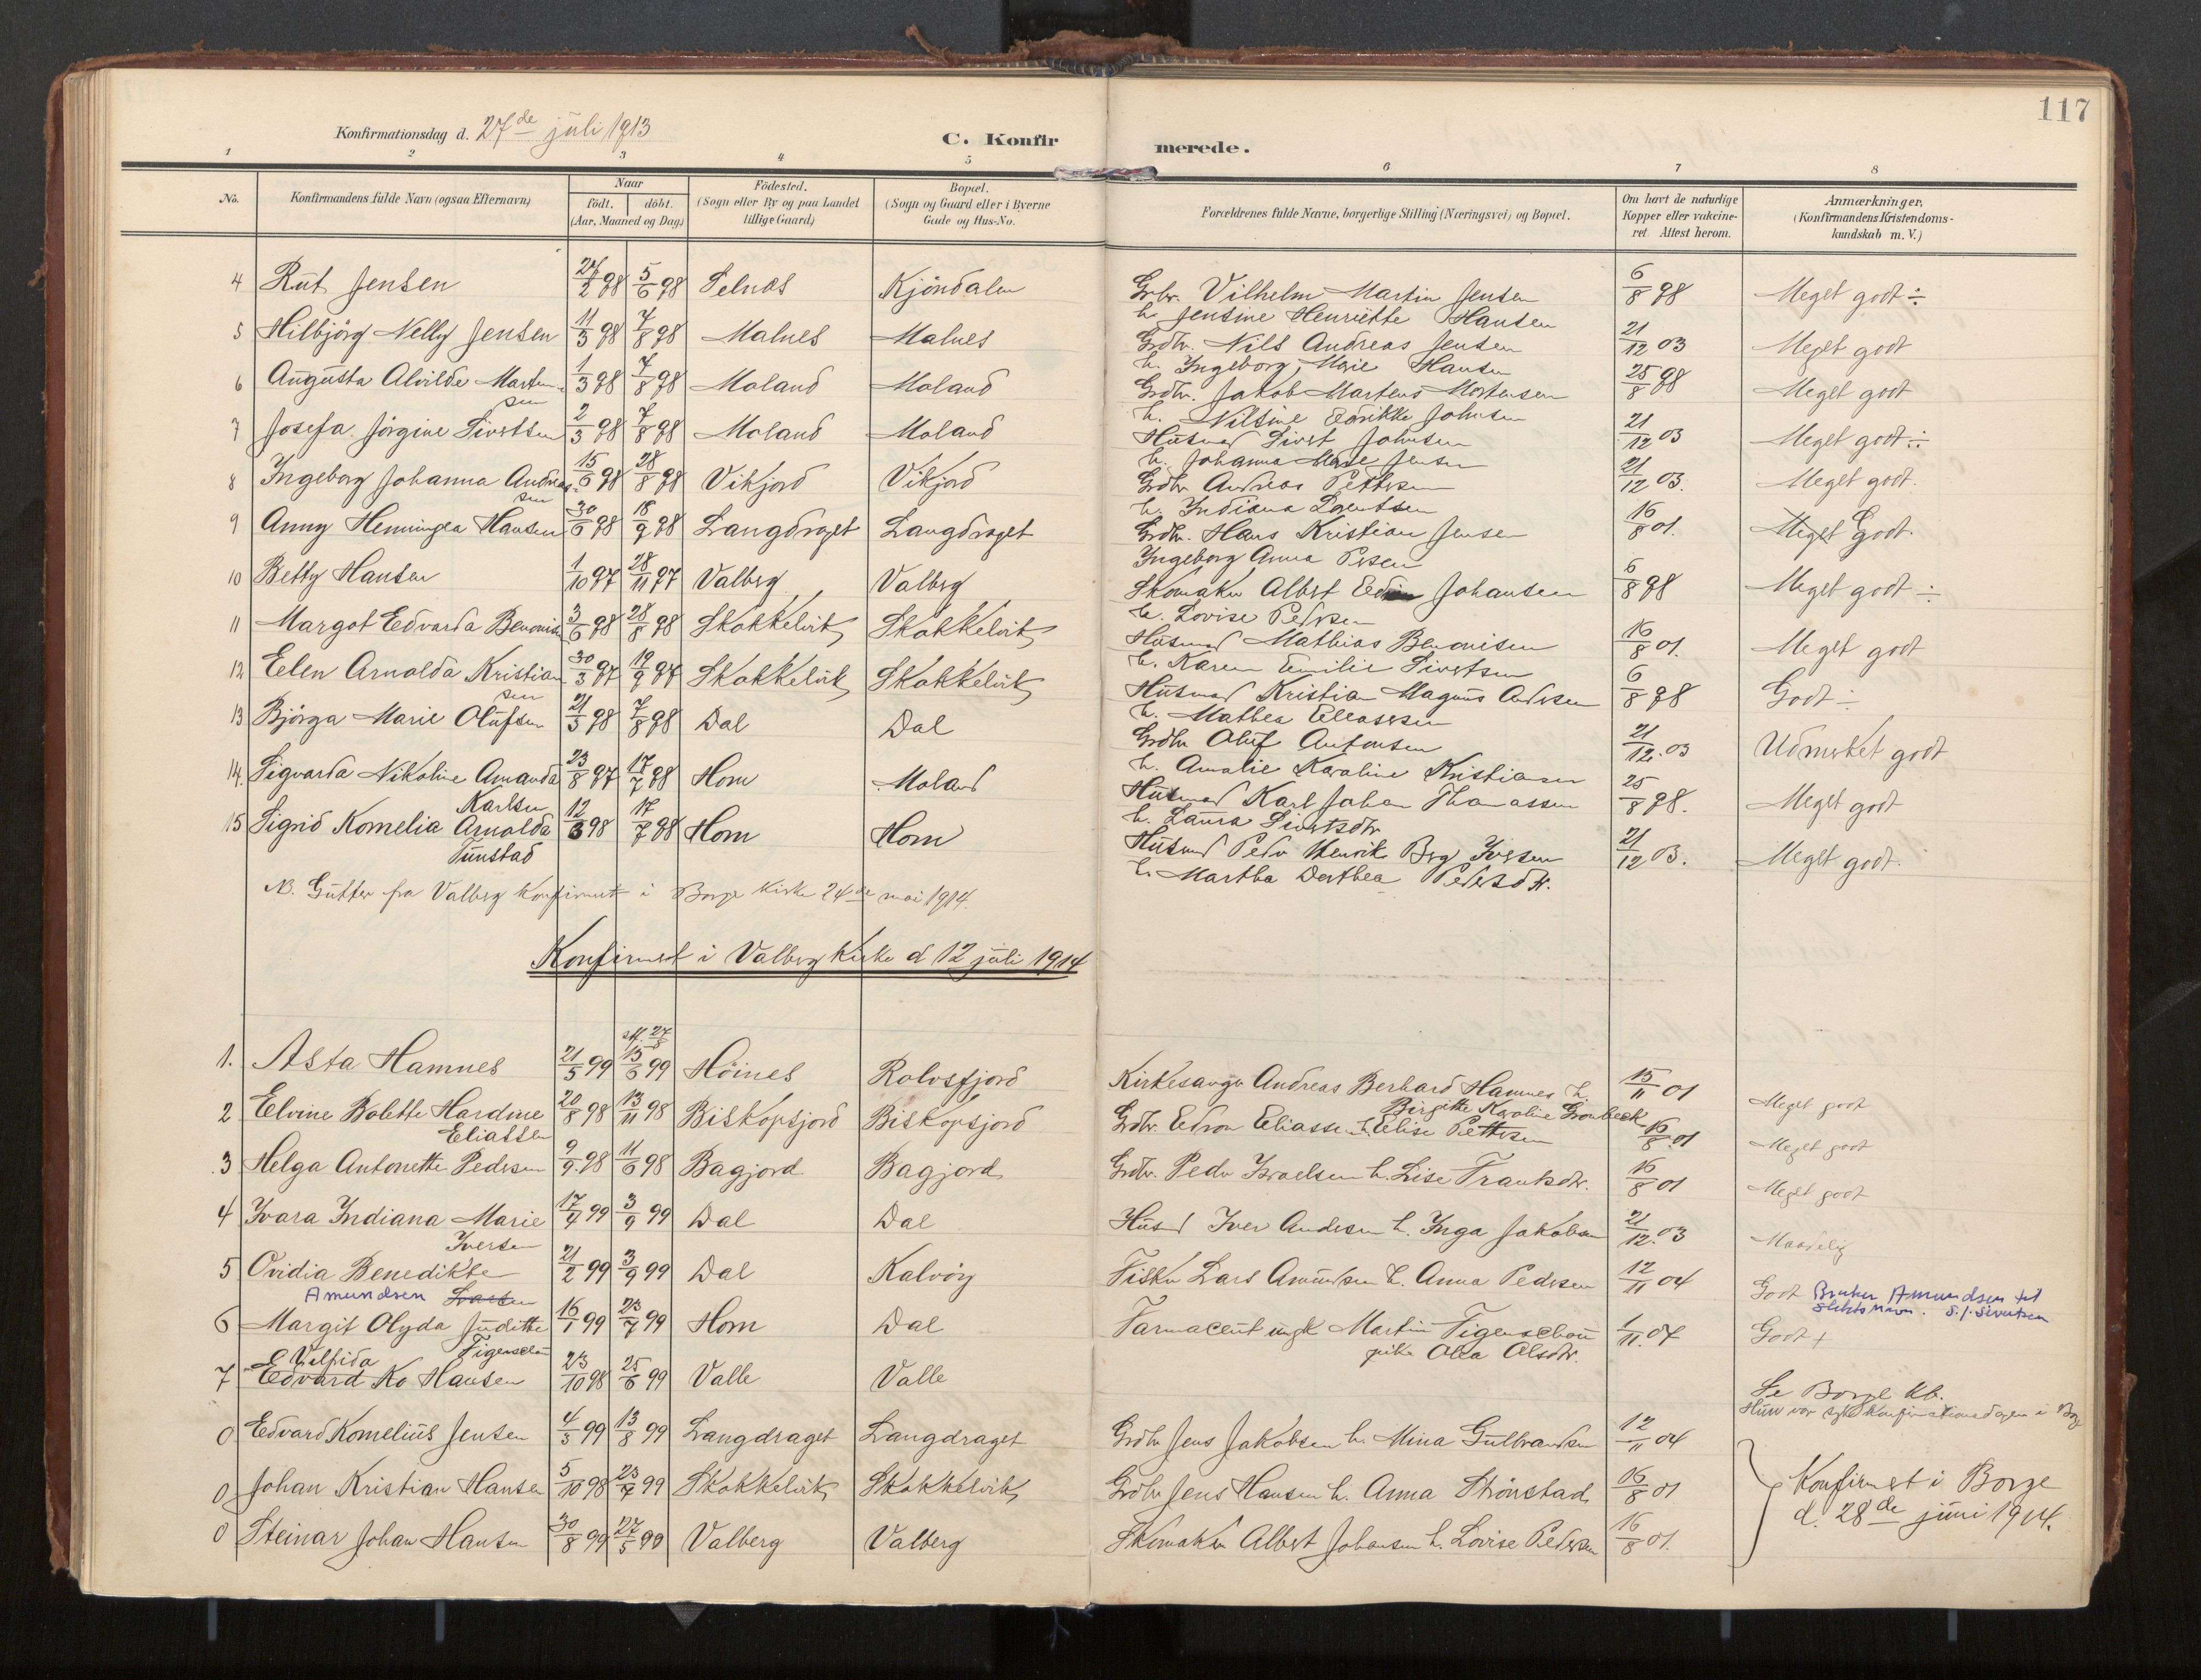 117
Konfirmationsdag d. 27de juli 1913
C. Konfirmerede.
1 2 3 4 5 6 7 8
No.
Konfirmandens fulde Navn (ogsaa Efternavn)
Naar
födt. döbt.
(Aar, Maaned og Dag)
Födested.
(Sogn eller By og paa Landet
tillige Gaard)
Bopæl.
(Sogn og Gaard eller i Byerne
Gade og Hus-No.
Forældrenes fulde Navne, borgerlige Stilling (Næringsvei) og Bopæl.
Om havt de naturlige
Kopper eller vakcine-
ret. Attest herom.
Anmærkninger,
(Konfirmandens Kristendoms-
kundskab m. V.)
4 Rut Jensen 27/2 98 5/6 98 Selnes Kjöndalen Grbr. Vilhelm Martin Jensen 6/8 98 Meget godt ÷
h. Jensine Henriette Hansen
5 Hilbjörg Nelly Jensen 11/3 98 7/8 98 Malnes Malnes Grdbr. Nils Andreas Jensen 21/12 03 Meget godt
h. Ingeborg Marie Hansen
6 Augusta Alvilde Morten- 1/3 98 7/8 98 Moland Moland Grdbr. Jakob Martens Mortensen 25/8 98 Meget godt
sen h. Nilsine Edrikke Johnsen
7 Josefa Jörgine Sivertsen 2/3 98 7/8 98 Moland Moland Husmd Sivert Johnsen 21/12 03 Meget godt ÷
h. Johanna Marie Jensen
8 Ingeborg Johanna Andrea- 15/6 98 28/8 98 Vikjord Vikjord Grdbr Andreas Pettersen 21/12 03. Meget godt.
sen h. Indiana Lorentsen
9 Anny Henningea Hansen 30/6 98 18/9 98 Langdraget Langdraget Grdbr. Hans Kristian Jensen 16/8 01. Meget Godt.
Ingeborg Anna
10 Betty Hansen 1/10 97 28/11 97 Valberg Valberg Skomaker Albert Johansen 6/8 98 Meget godt ÷
h. Lovise Pedersen
11 Margot Edvarda Benonisen 3/6 98 28/8 98 Skokkelvik Skokkelvik Husmd Mathias Benonisen 16/8 01. Meget godt
h. Karen Emilie Sivertsen
12 Eelen Arnolda Kristian 30/3 97 19/9 97 Skokkelvik Skokkelvik Husmd Kristian Magnus Andersen 6/8 98 Godt ÷
sen h. Mathea Eleasesen
13 Björga Marie Olufsen 21/3 98 7/8 98 Dal Dal Grdbr Oluf Antonsen 21/12. 03 Udmerket godt
h. Amalie Karoline Kristiansen
14. Sigvarda Nikoline Amanda 23/8 97 17/7 98 Horn Moland Husmd Karl Johan Thomassen 25/8 98. Meget godt
Karlsen h. Laura Sivertsdtr
15 Sigrid Kornelia Arnolda 12/3 98 17/7 98 Horn Horn Husmd Peder Henrik Berg Iversen 21/12 03. Meget godt.
Tunstad h. Martha Dorthea Pedersdtr.
NB. Gutter fra Valberg konfirmert i Borge kirke 24de mai 1914.
Konfirmert i Valberg kirke d 12 juli 1914
stf. 27/5
1. Asta Hamnes 21/5 99 13/6 99 Höines Rolvsfjord Kirkesanger Andreas Berhard Hamnes h. 15/11 01 Meget godt
Birgitte Karoline Gronbeck
2 Elvine Bolette Hardine 20/8 98 13/11 98 Biskopsjord Biskopsjord Grdbr. Edvon Eliassen h. Elise Pettersen 16/8 01 Meget godt
Eliassen
3 Helga Antonette Pedersen 9/9. 98 11/6 98 Bagjord Bagjord Grdbr. Peder Israelsen h. Lise Frantsdtr. 16/8 01 Meget godt
4 Ivara Indiana Marie 17/4 99 3/9 99 Dal Dal Husmd Iver Andersen h. Inga Jakobsen 21/12. 03 Maadelig
Iversen
5 Ovidia Benedikte 21/2 99 3/9 99 Dal Kalvöy Fisker Lars Amundsen h. Anna Pedersen 12/11 04 Godt Bruker Amundsen til
Amundsen Larsen slektsnavn. S.J. Sivertsen
6 Margit Olyda Juditte 16/1 99 23/7 99 Horn Dal Farmaceut ungk Martin Figenschou 1/11. 07 Godt +
Figenschau pike Olea Olsdtr.
E Valfrida
7 Edvard Ko Hansen 23/10 98 25/6 99 Valle Valle Se Borge kb.
Hun var syg konfirmationsdagen i Borge
0 Edvard Kornelius Jensen 4/3 99 13/8 99 Langdraget Langdraget Grdbr Jens Jakobsen h. Mina Gulbrandsen 12/11 04
0 Johan Kristian Hansen 5/10 98 23/7 99 Skokkelvik Skokkelvik Grdbr Jens Hansen h. Anna Strönstad 16/8 01 Konfirmert i Borge
d. 28de juni 1914.
0 Steinar Johan Hansen 30/8 99 27/5 99 Valberg Valberg Skomaker Albert Johansen h. Lovise Pedersen 16/8 01.